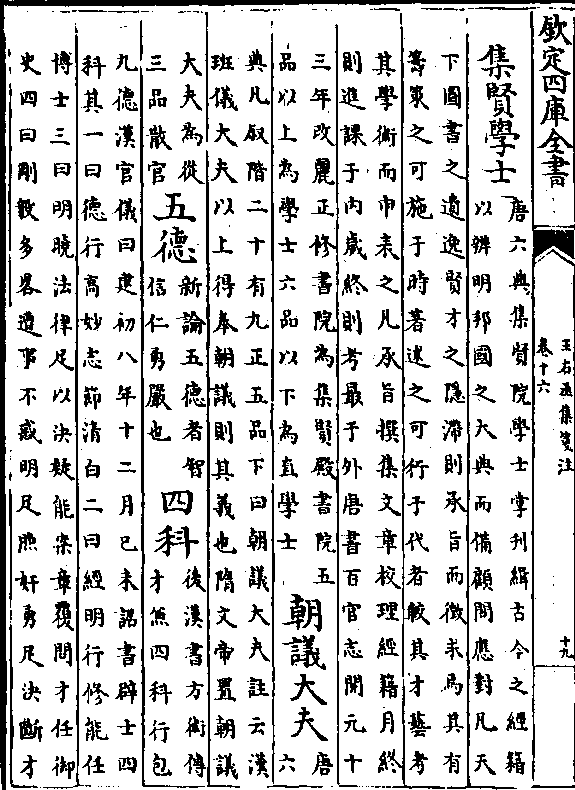 欽定四庫全書
王右丞集箋注
卷十六
十九
集賢學士
唐六典集賢院學士掌刊緝古今之經籍
以辨明邦國之大典而備顧問應對凡天
下圖書之遺逸賢才之隱滯則承旨而徵求焉其有
籌策之可施于時著述之可行于代者較其才藝考
其學術而申表之凡承旨撰集文章校理經籍月終
則進課于内歲終則考最于外唐書百官志開元十
三年改麗正修書院為集賢殿書院五
品以上為學士六品以下為直學士
朝議大夫
唐
六
典凡叙階二十有九正五品下曰朝議大夫註云漢
班儀大夫以上得奉朝議則其義也隋文帝置朝議
大夫為從
三品散官
五德
新論五德者智
信仁勇嚴也
四科
後漢書方術傳
才兼四科行包
九德漢官儀曰建初八年十二月己未詔書辟士四
科其一曰德行高妙志節清白二曰經明行修能任
博士三曰明曉法律足以決疑能案章覆問才任御
史四曰剛毅多畧遭事不惑明足照奸勇足決斷才